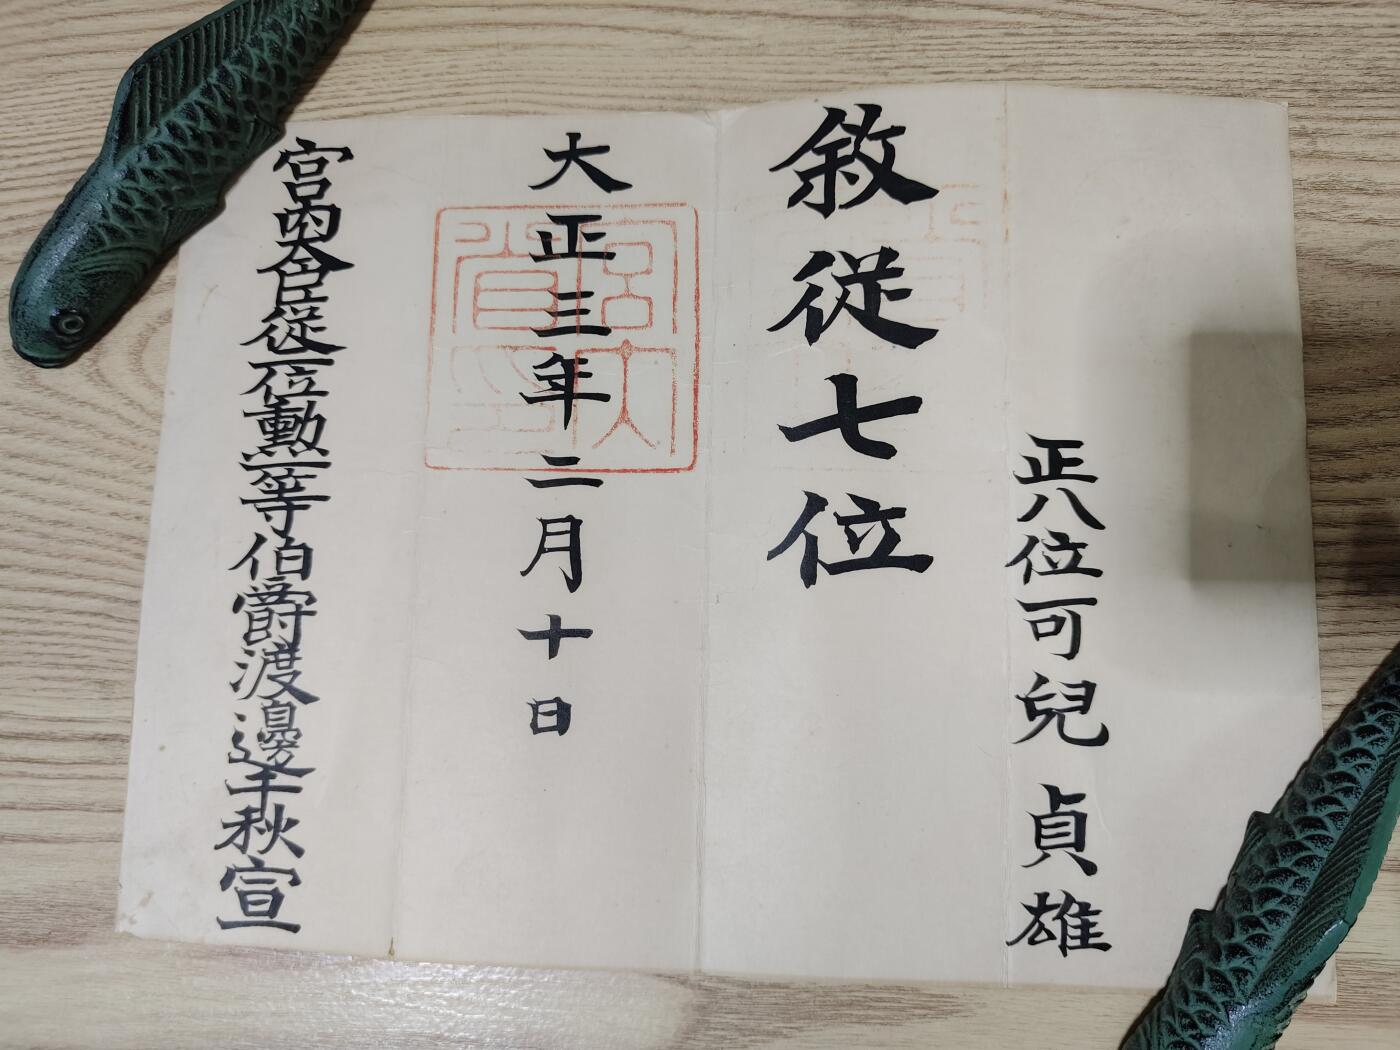 正八位可兒貞雄
敘従七位
大正三年二月十日
宮內大臣従二位勳一等伯爵渡邊千秋宣
宮内省印